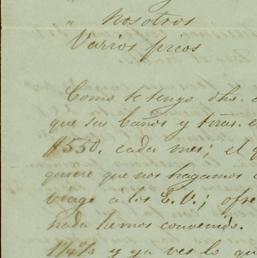 " nosotros
Varios picos
Como te tengo dho.
que sus baños y tinas
$550. cada mes; el
quiere que nos hagamos
viage á los E.V.; ofre
nada hemos convenido.
1¼% y ya ves lo que